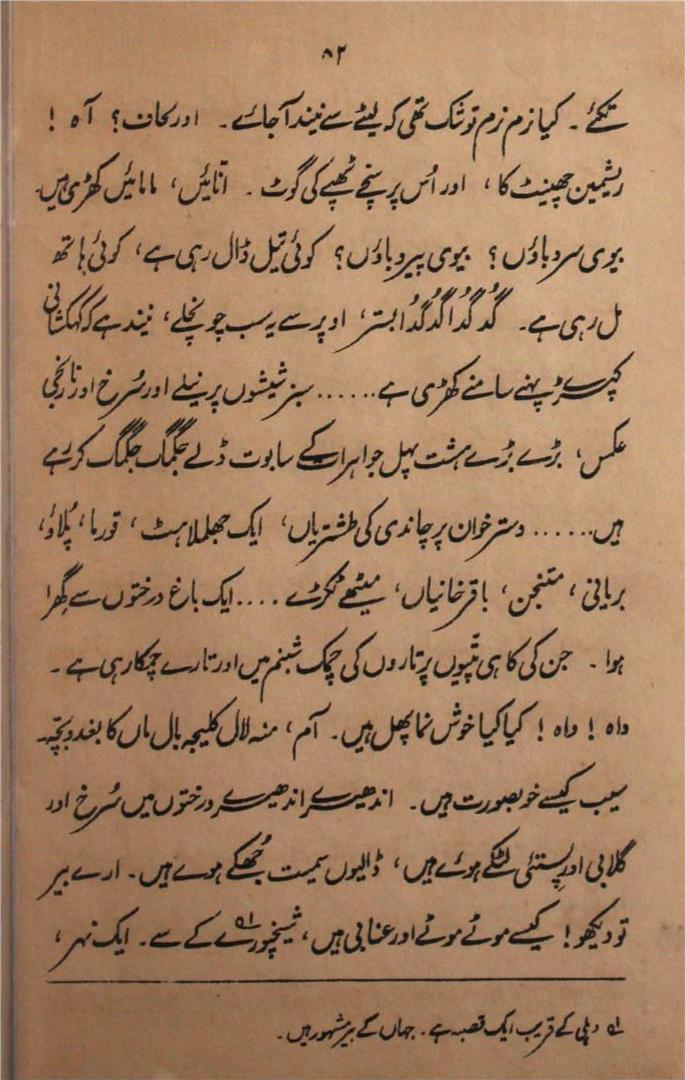 ۸۲
تکئے ۔ کیا نرم نرم توشک تھی کہ لیٹے سے نیند آجائے ۔ اور لحاف ؟ آہ !
ریشمین چھینٹ کا ، اور اُس پر سنچے ٹھپے کی گوٹ ۔ انائیں ، مامائیں کھڑی ہیں۔
بیوی سر دباؤں ؟ بیوی پیر دباؤں ؟ کوئی تیل ڈال رہی ہے ، کوئی ہاتھ
مل رہی ہے ۔ گُدگُدا گُدگُدا بستر ، اوپر سے یہ سب چونچلے ، نیند ہے کہ کہکشانی
کپڑے پہنے سامنے کھڑی ہے ...... سبز شیشوں پر نیلے اور سُرخ اور نارنجی
عکس ، بڑے بڑے ہشت پہل جواہرات کے سابوت ڈلے جگمگ جگمگ کر رہے
ہیں ...... دسترخوان پر چاندی کی طشتریاں ، ایک جھلملاہٹ ، قورما ، پُلاؤ ،
بریانی ، متنجن ، باقرخانیاں ، میٹھے ٹکڑے .... ایک باغ درختوں سے گھرا
ہوا ۔ جن کی کاہی پتّیوں پر تاروں کی چمک شبنم میں اور تارے چمکا رہی ہے ۔
واہ ! واہ ! کیا کیا خوش نما پھل ہیں ۔ آم ، منہ لال کلیجہ بال ماں کا بغدو بچّہ ۔
سیب کیسے خوبصورت ہیں ۔ اندھیرے اندھیرے درختوں میں سُرخ اور
گلابی اور پستئی لٹکے ہوئے ہیں ، ڈالیوں سمیت جُھکے ہوے ہیں ۔ ارے بیر
تو دیکھو ! کیسے موٹے موٹے اور عنابی ہیں ، شیخپورے ؎۱ کے سے ۔ ایک نہر ،
؎۱ دہلی کے قریب ایک قصبہ ہے ۔ جہاں کے بیر مشہور ہیں ۔